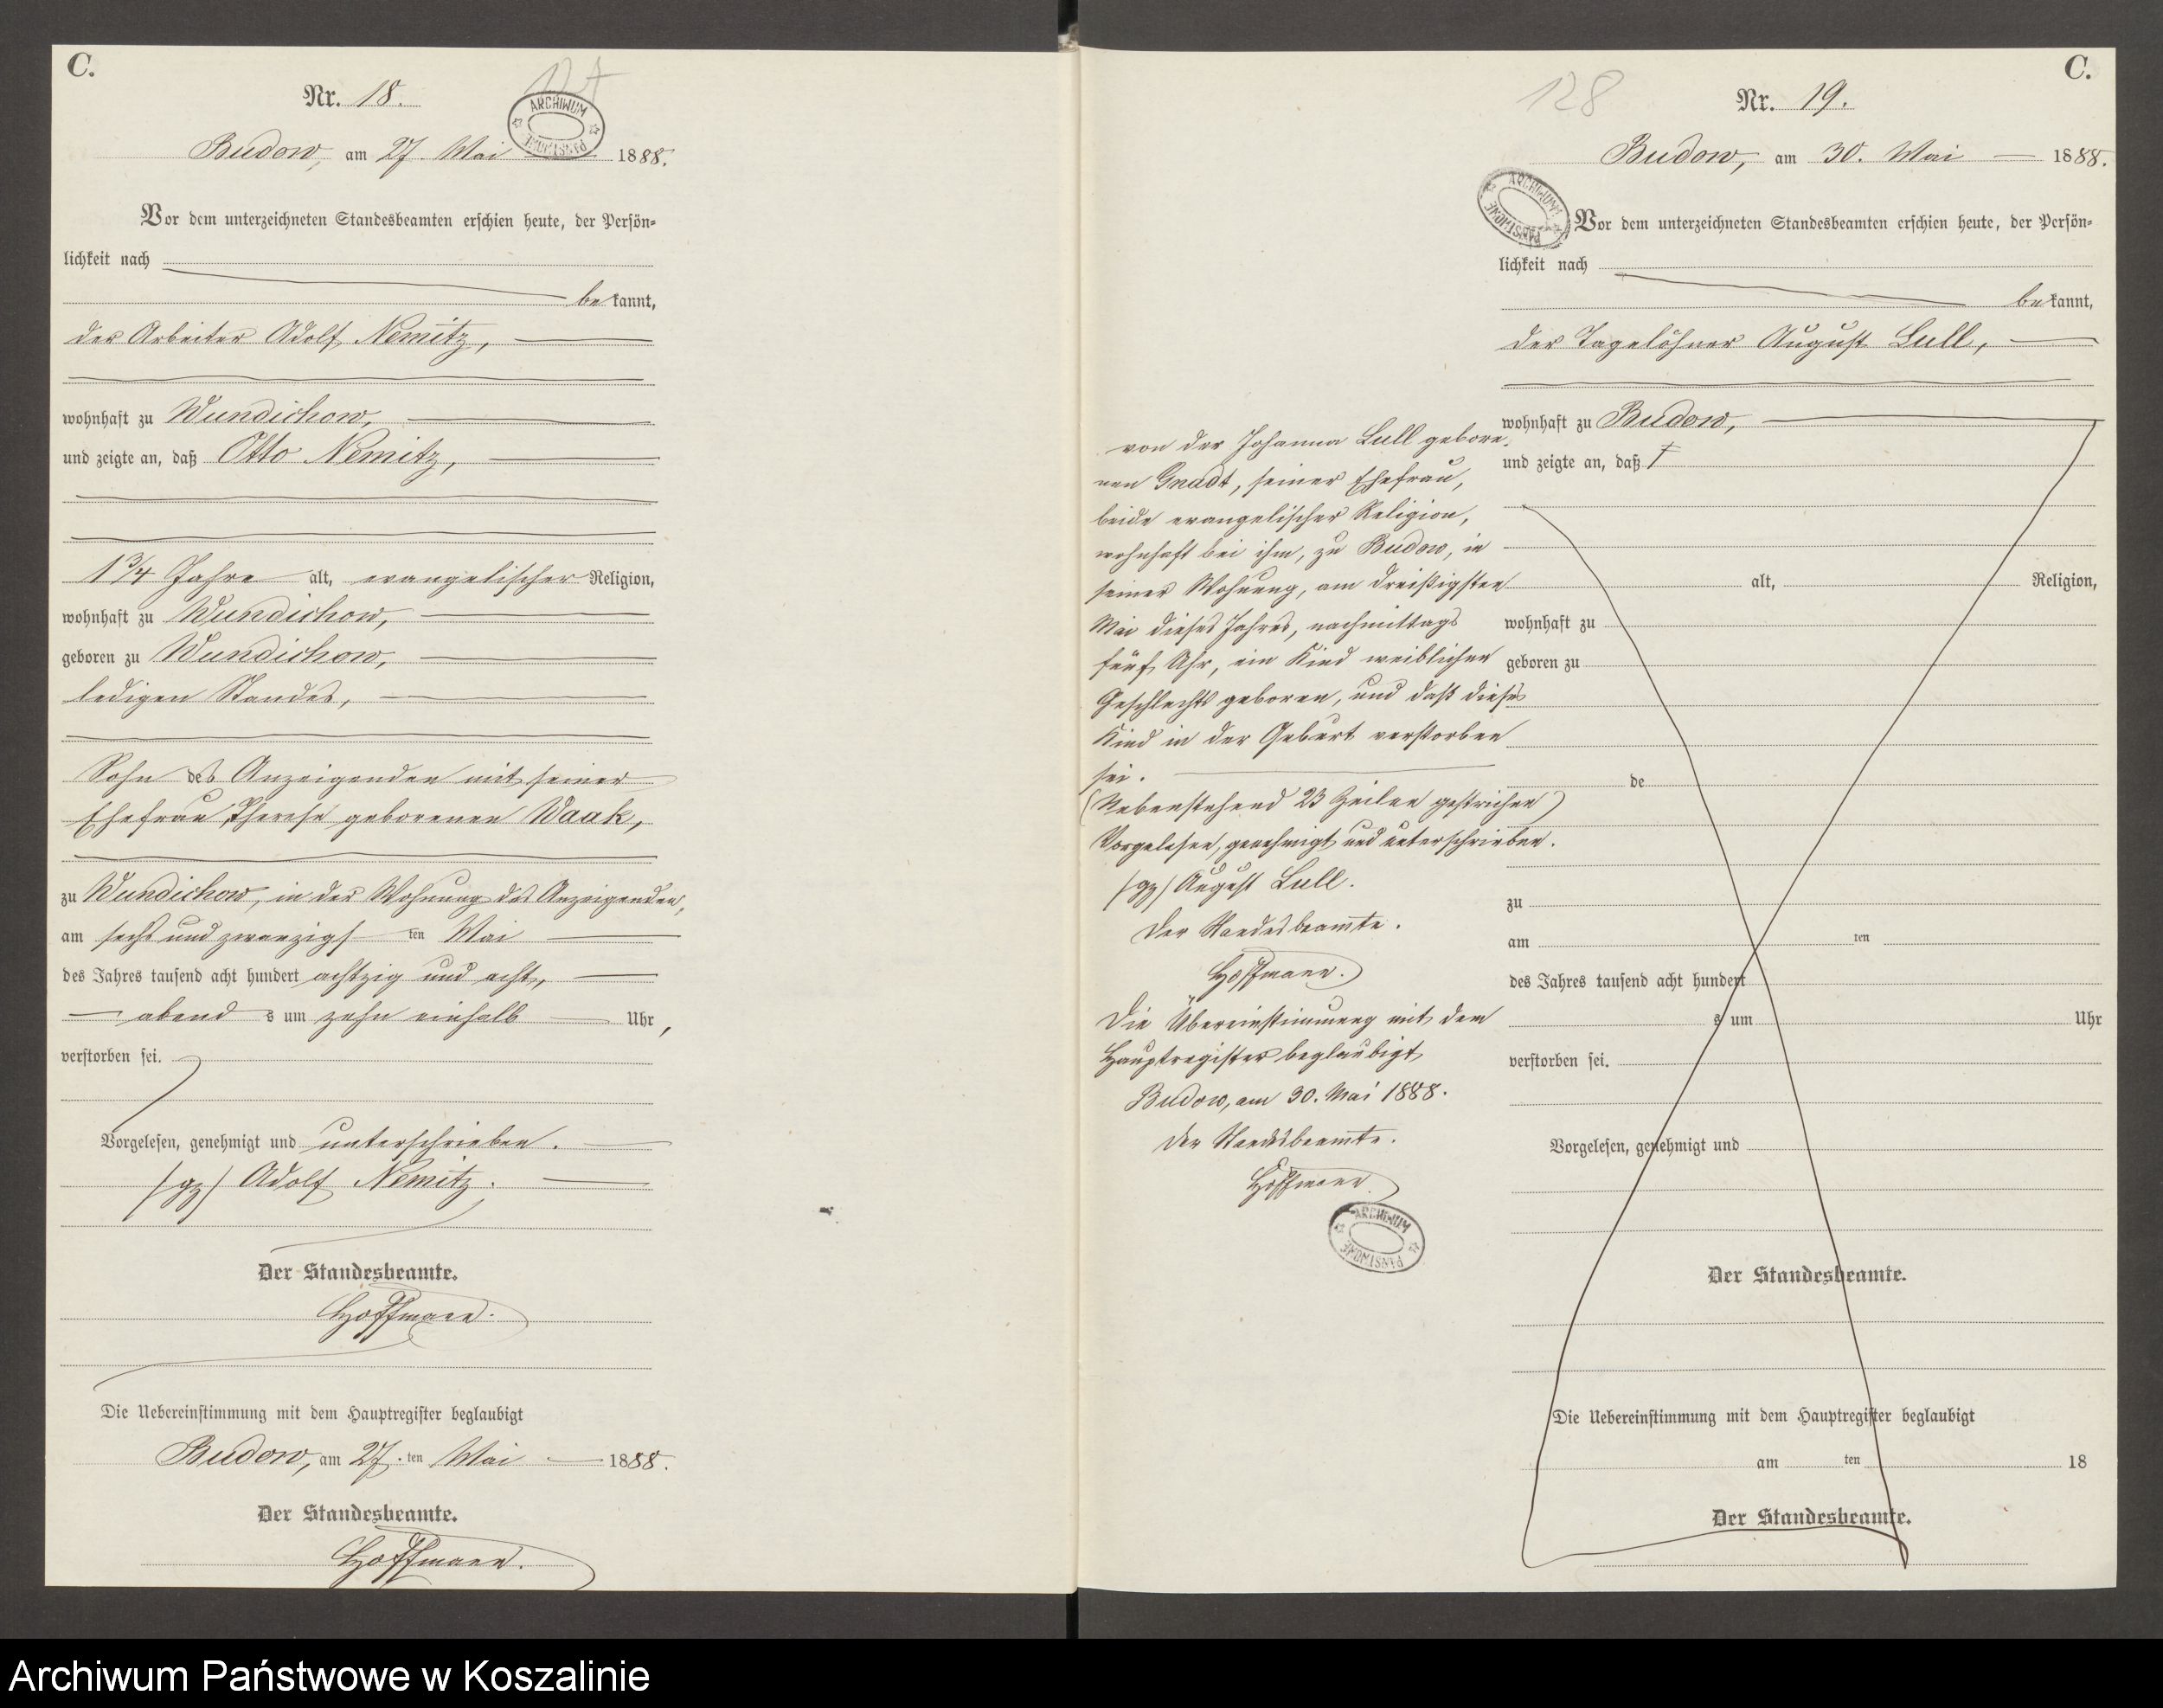 C.
Nr. 18.
ARCHIWUM
PAŃSTWOWE
Budow, am 27. Mai 1888.
Vor dem unterzeichneten Standesbeamten erschien heute, der Persön-
lichkeit nach
bekannt,
der Arbeiter Adolf Nemitz,
wohnhaft zu Wundichow,
und zeigte an, daß Otto Nemitz,
1 3/4 Jahre alt, evangelischer Religion,
wohnhaft zu Wundichow,
geboren zu Wundichow,
ledigen Standes,
Sohn des Anzeigenden mit seiner
Ehefrau Therese geborenen Waak,
zu Wundichow, in der Wohnung des Anzeigenden,
am sechs und zwanzigsten Mai
des Jahres tausend acht hundert achtzig und acht,
abends um zehn einhalb Uhr,
verstorben sei.
Vorgelesen, genehmigt und unterschrieben.
(gz) Adolf Nemitz.
Der Standesbeamte.
Hoffmann.
Die Uebereinstimmung mit dem Hauptregister beglaubigt
Budow, am 27. ten Mai 1888.
Der Standesbeamte.
Hoffmann.
C.
128
Nr. 19.
Budow, am 30. Mai 1888.
ARCHIWUM
PAŃSTWOWE
Vor dem unterzeichneten Standesbeamten erschien heute, der Persön-
lichkeit nach
bekannt,
der Tagelöhner August Lull,
wohnhaft zu Budow,
und zeigte an, daß †
von der Johanna Lull gebore-
nen Gnadt, seiner Ehefrau,
beide evangelischer Religion,
wohnhaft bei ihm, zu Budow, in
seiner Wohnung, am dreißigsten
Mai dieses Jahres, nachmittags
fünf Uhr, ein Kind weiblichen
Geschlechts geboren, und daß dieses
Kind in der Geburt verstorben
sei.
(Nebenstehend 23 Zeilen gestrichen)
Vorgelesen, genehmigt und unterschrieben.
(gz) August Lull.
Der Standesbeamte.
Hoffmann.
Die Übereinstimmung mit dem
Hauptregister beglaubigt
Budow, am 30. Mai 1888.
Der Standesbeamte.
Hoffmann
ARCHIWUM
PAŃSTWOWE
alt, Religion,
wohnhaft zu
geboren zu
de
zu
am ten
des Jahres tausend acht hundert
s um Uhr
verstorben sei.
Vorgelesen, genehmigt und
Der Standesbeamte.
Die Uebereinstimmung mit dem Hauptregister beglaubigt
am ten 18
Der Standesbeamte.
Archiwum Państwowe w Koszalinie